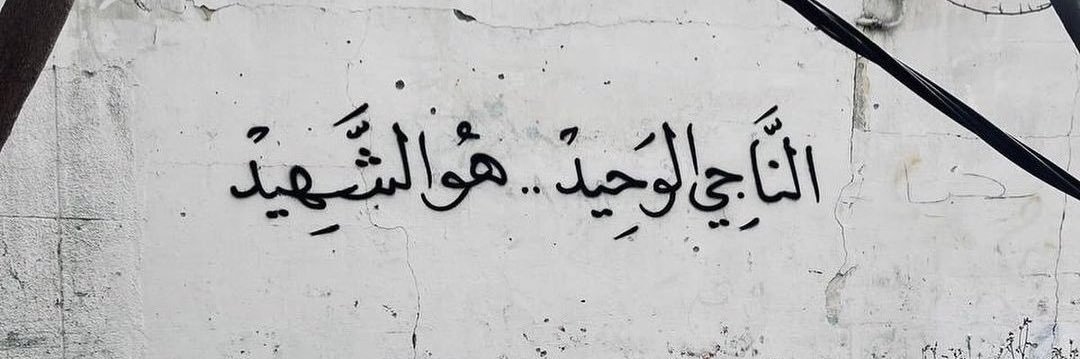 النَّاجِي الوَحِيدْ .. هُوا الشَّهِيدْ